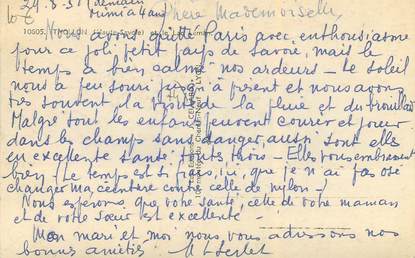 24-8-5
demain
Rumilly
Chère Mademoiselle,
10505. THOLLON (Haute-Savoie)
Nous avons quitté Paris avec enthousiasme
pour ce joli petit pays de Savoie, mais le
temps a bien calmé nos ardeurs - Le soleil
nous a peu souri jusqu'à présent et nous avons
très souvent la visite de la pluie et du brouillard
Malgré tout les enfants peuvent courir et jouer
dans les champs sans danger, aussi sont elles
en excellente santé toutes trois - Elles vous embrassent
bien. Le temps est si frais, ici, que je n'ai pas osé
changer ma ceinture contre celle de nylon -
Nous espérons que votre santé, celle de votre maman
et de votre sœur est excellente -
Mon mari et moi nous vous adressons nos
bonnes amitiés